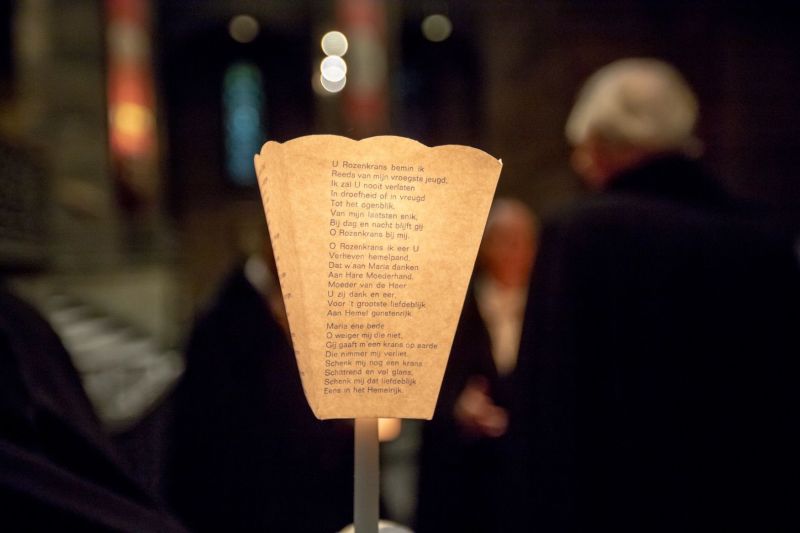 U Rozenkrans bemin ik
Reeds van mijn vroegste jeugd,
Ik zal U nooit verlaten
In droefheid of in vreugd
Tot het ogenblik,
Van mijn laatsten snik,
Bij dag en nacht blijft gij
O Rozenkrans bij mij.
O Rozenkrans ik eer U
Verheven hemelpand,
Dat w'aan Maria danken
Aan Hare Moederhand,
Moeder van de Heer
U zij dank en eer,
Voor 't grootste liefdeblijk
Aan Hemel gunstenrijk.
Maria ene bede
O weiger mij die niet,
Gij gaaft m'een krans op aarde
Die nimmer mij verliet,
Schenk mij nog een krans
Schittrend en vol glans,
Schenk mij dat liefdeblijk
Eens in het Hemelrijk.